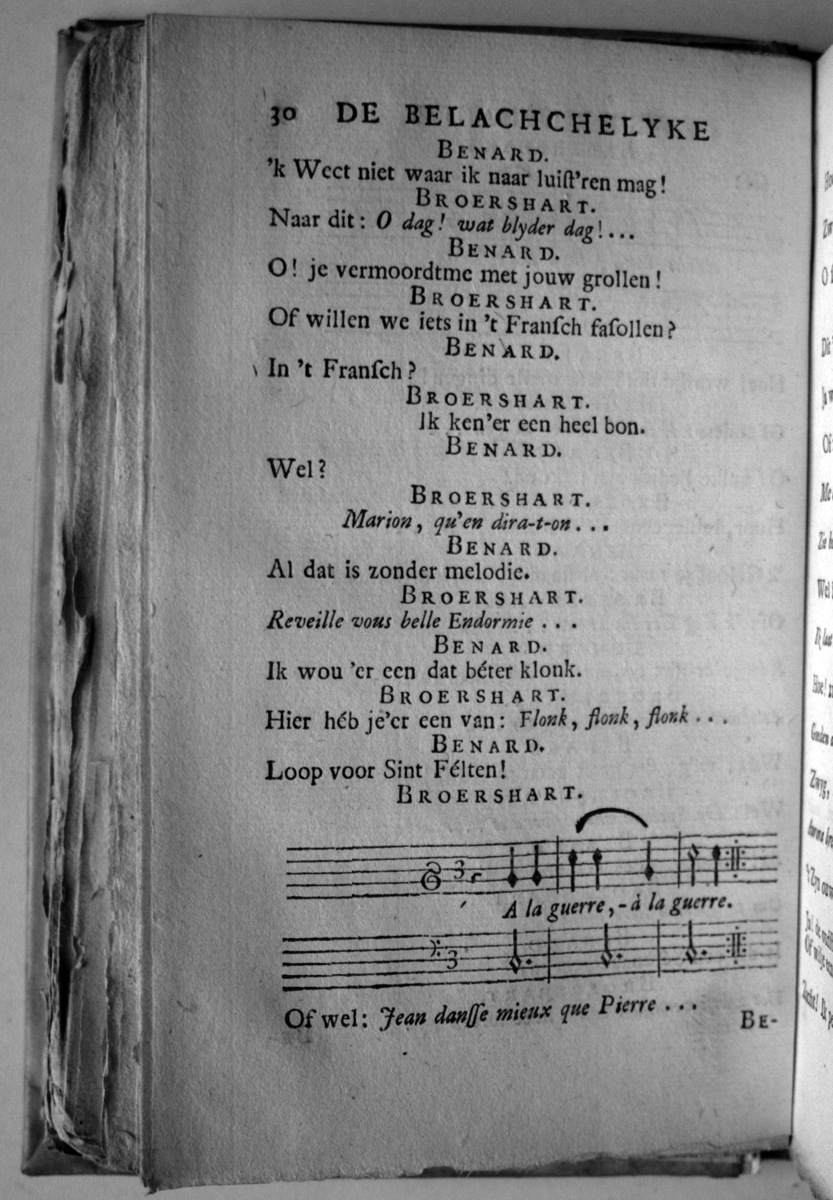 30 DE BELACHCHELYKE
BENARD.
'k Weet niet waar ik naar luiſt'ren mag!
BROERSHART.
Naar dit: O dag! wat blyder dag!...
BENARD.
O! je vermoordtme met jouw grollen!
BROERSHART.
Of willen we iets in 't Franſch faſollen?
BENARD.
In 't Franſch?
BROERSHART.
Ik ken'er een heel bon.
BENARD.
Wel?
BROERSHART.
Marion, qu'en dira-t-on...
BENARD.
Al dat is zonder melodie.
BROERSHART.
Reveille vous belle Endormie ...
BENARD.
Ik wou 'er een dat béter klonk.
BROERSHART.
Hier héb je'er een van: Flonk, flonk, flonk...
BENARD.
Loop voor Sint Félten!
BROERSHART.
3
A la guerre,-à la guerre.
3
Of wel: Jean danſſe mieux que Pierre ...
BE-